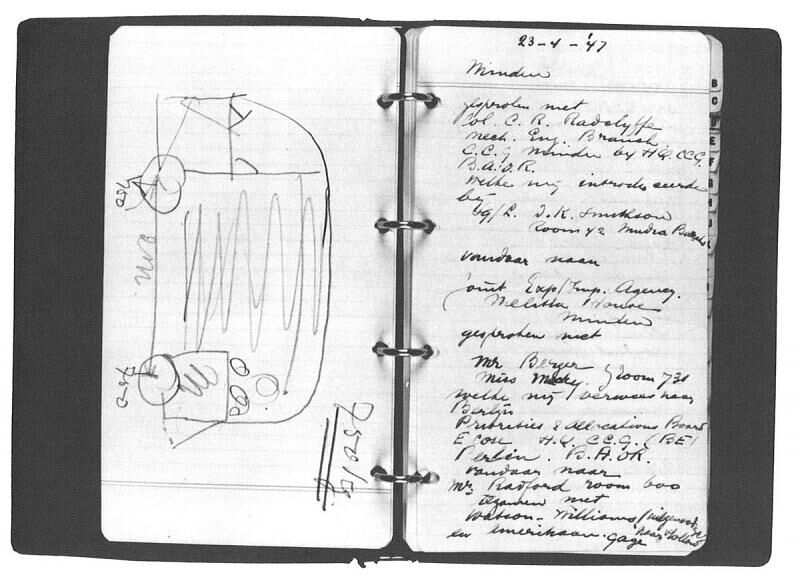 750
750
2500 kg
23-4-'47
Minden
gesproken met
Col. C. R. Radclyffe
Mech. Eng. Branch
C.C.G Minden by HQ. CCG.
B.A.O.R.
welke mij introduceerde
bij
D.K.
Room 42 Mudra
vandaar naar
joint Exp/Imp. Agency.
Melitta House
Minden
gesproken met
Mr Berger
Miss room 730
welke mij verwees naar
Berlijn
Priorities & Allocations Board
H.Q. C.C.G. (BE)
Berlin. B.A.O.R.
vandaar naar
Mr Radford room 600
tezamen met
Watson-Williams
en Amerikaan Gage naar Holland
B
C
E
F